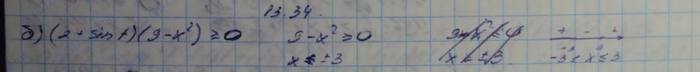 13.34.
б) (2 + sin x)(9 - x²) ≥ 0
9 - x² ≥ 0
x ± 3
+ - +
-3 ≤ x ≤ 3